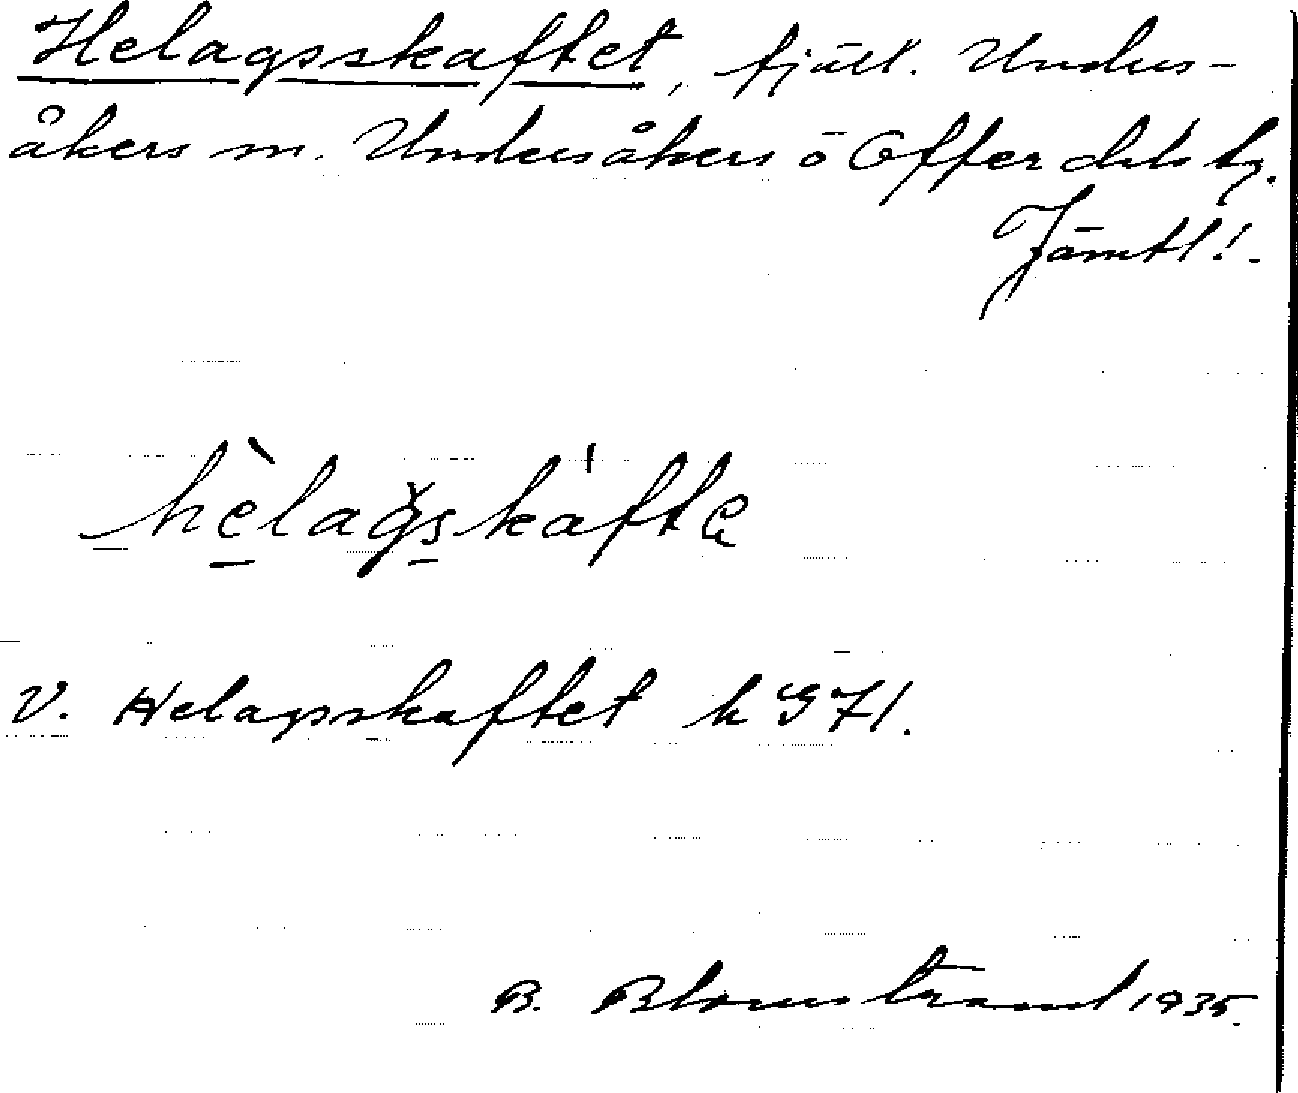 Helagsskaftet, fjäll. Unders-
åkers sn. Undersåkers o Offerdals tg.
Jämtl.
hèlagskafte
V. Helagsskaftet h 971.
B. Blomstrand 1935.